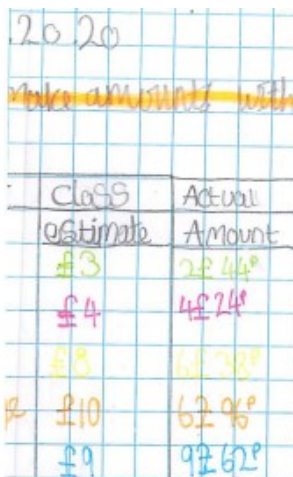 20 20
make amounts with
Class Actual
estimate Amount
£3 2£ 44p
£4 4£ 24p
£8 6£ 38p
£10 6£ 96p
£9 9£ 62p